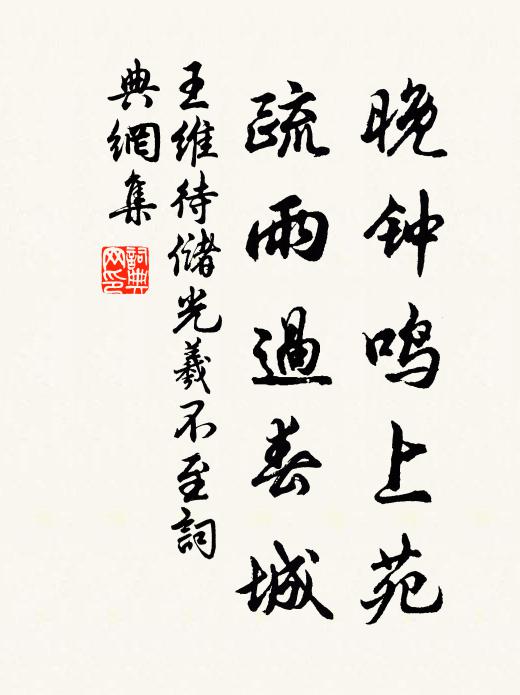 晚钟鸣上苑
疏雨過春城
王維待儲光羲不至詞
典網集
詞典
网印